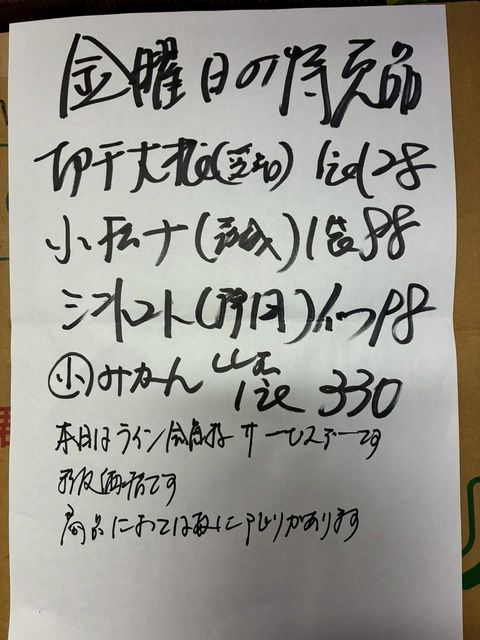 金曜日の特売品
切干大根(愛知) 1袋128
小松ナ(茨城)1袋98
ミニトマト(静岡)1パック98
小 みかん 1袋 330
本日はライン会員様サービスデーです
税抜価格です
商品によっては数に限りがあります